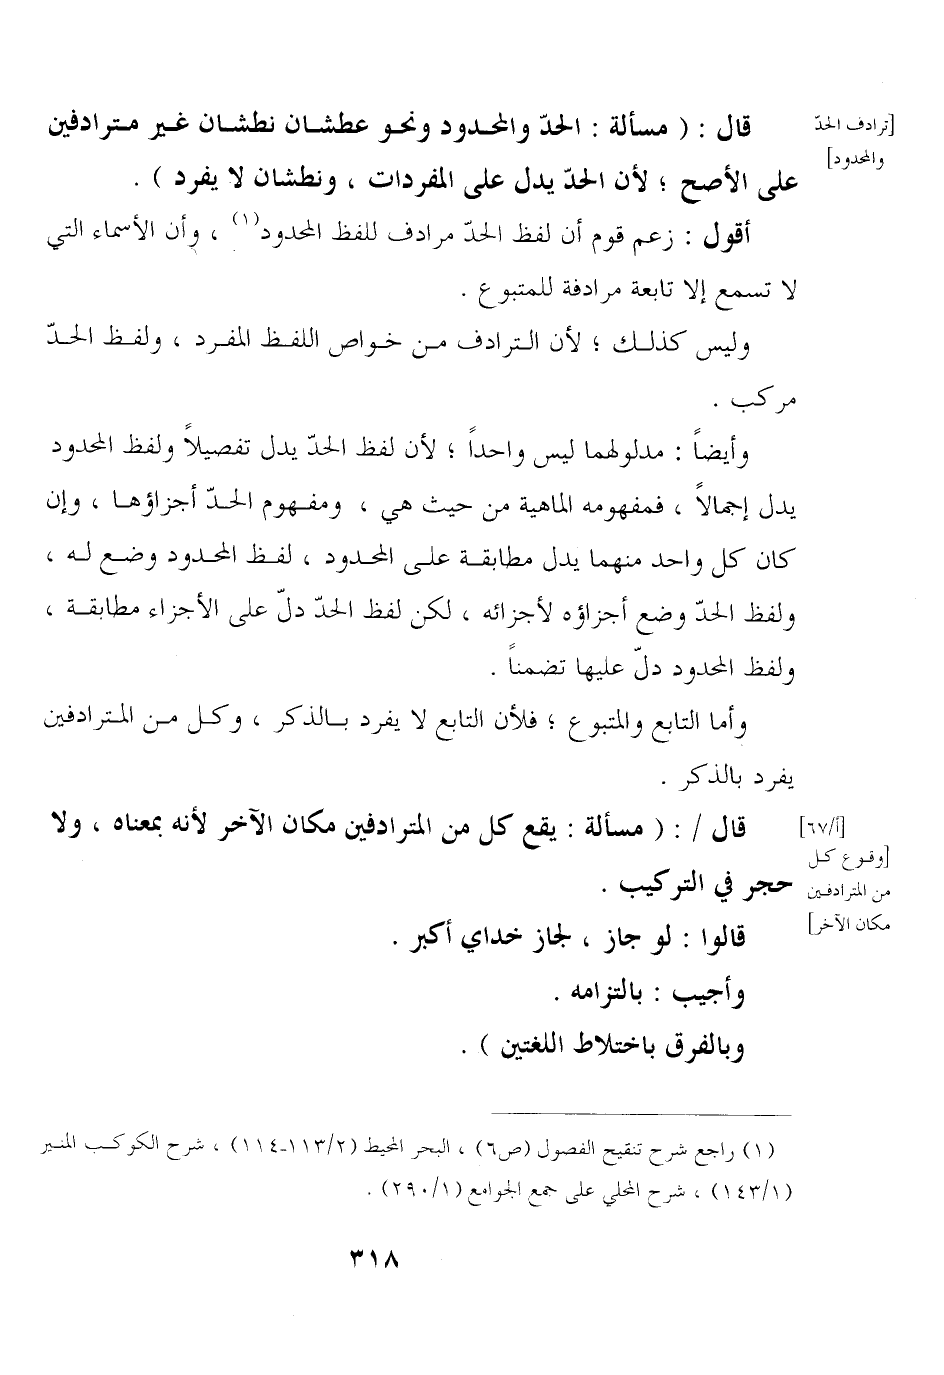 [ترادف الحدّ
والمحدود]
قال : ( مسألة : الحدّ والمحدود ونحو عطشان نطشان غير مترادفين
على الأصح ؛ لأن الحدّ يدل على المفردات ، ونطشان لا يفرد ) .
أقول : زعم قوم أن لفظ الحدّ مرادف للفظ المحدود(١) ، وأن الأسماء التي
لا تسمع إلا تابعة مرادفة للمتبوع .
وليس كذلك ؛ لأن الترادف من خواص اللفظ المفرد ، ولفظ الحدّ
مركب .
وأيضاً : مدلولهما ليس واحداً ؛ لأن لفظ الحدّ يدل تفصيلاً ولفظ المحدود
يدل إجمالاً ، فمفهومه الماهية من حيث هي ، ومفهوم الحدّ أجزاؤها ، وإن
كان كل واحد منهما يدل مطابقة على المحدود ، لفظ المحدود وضع له ،
ولفظ الحدّ وضع أجزاؤه لأجزائه ، لكن لفظ الحدّ دلّ على الأجزاء مطابقة ،
ولفظ المحدود دلّ عليها تضمناً .
وأما التابع والمتبوع ؛ فلأن التابع لا يفرد بالذكر ، وكل من المترادفين
يفرد بالذكر .
[٦٧/أ]
[وقوع كل
من المترادفين
مكان الآخر]
قال / : ( مسألة : يقع كل من المترادفين مكان الآخر لأنه بمعناه ، ولا
حجر في التركيب .
قالوا : لو جاز ، لجاز خداي أكبر .
وأجيب : بالتزامه .
وبالفرق باختلاط اللغتين ) .
(١) راجع شرح تنقيح الفصول (ص٦) ، البحر المحيط (١١٣/٢-١١٤) ، شرح الكوكب المنير
(١٤٣/١) ، شرح المحلي على جمع الجوامع (٢٩٠/١) .
٣١٨